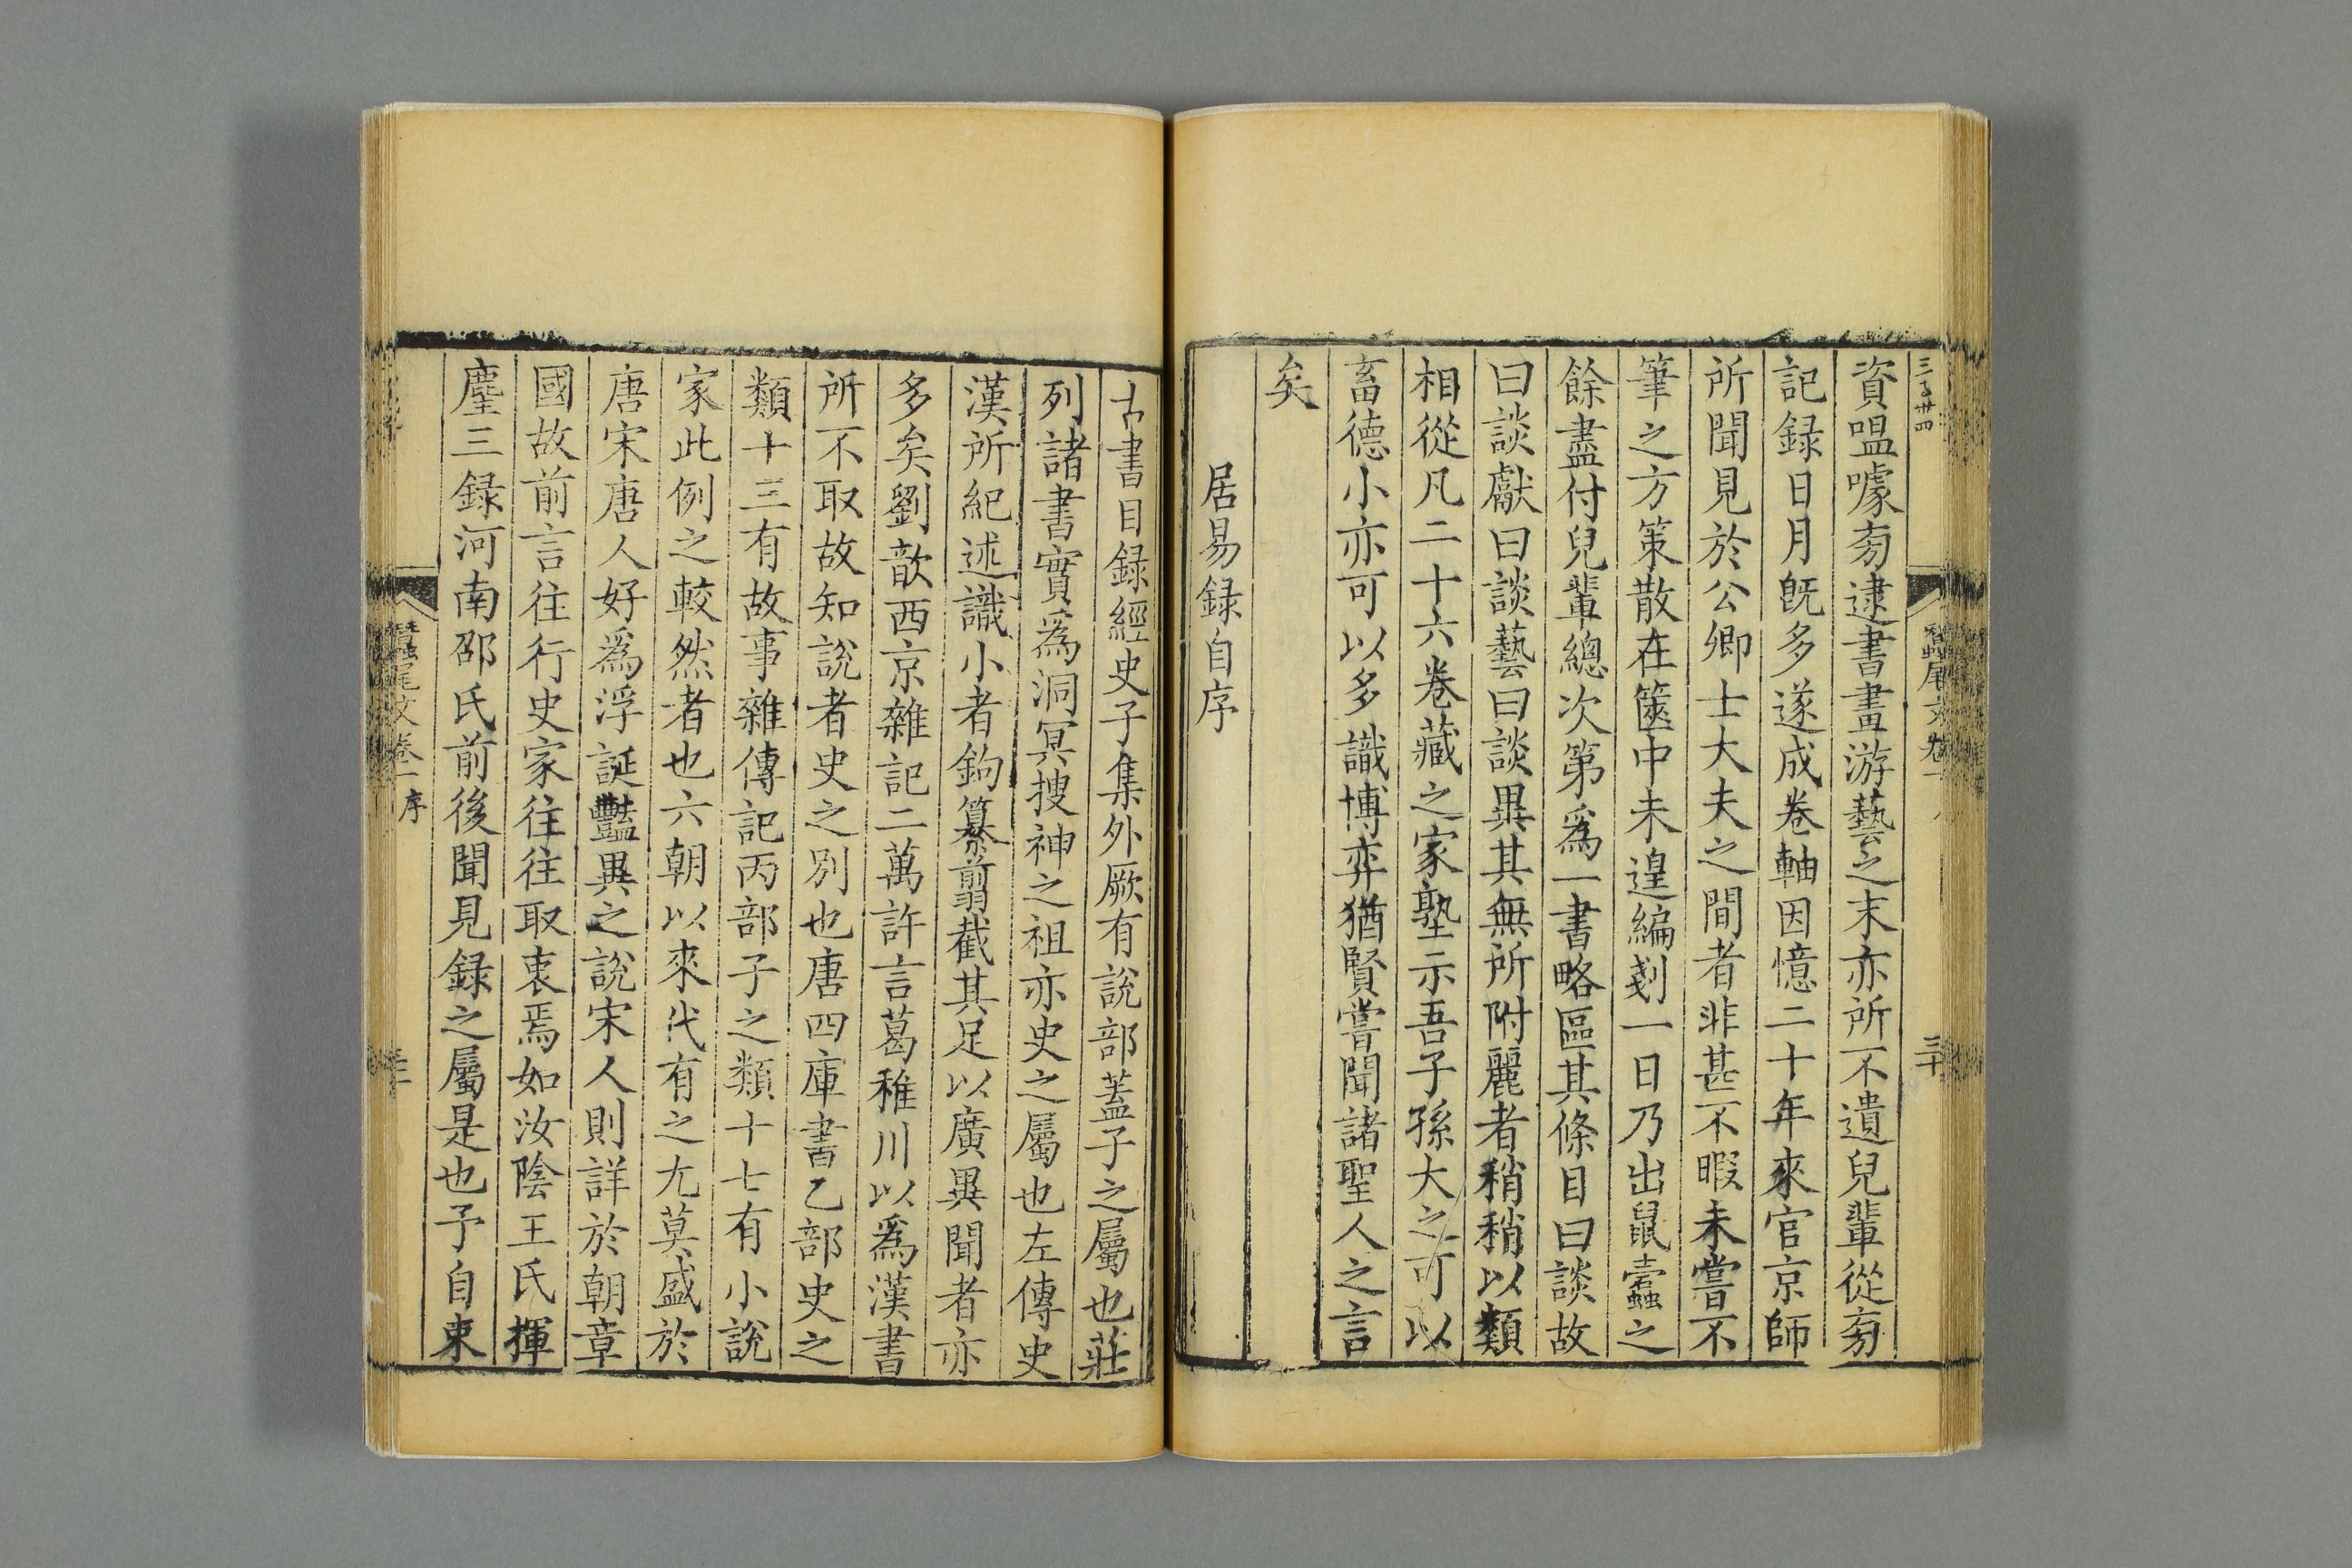 三百卅四
蠶尾文 卷一
三十
資嗢噱旁逮書畫游藝之末亦所不遺兒輩從旁
記録日月旣多遂成卷軸因憶二十年來官京師
所聞見於公卿士大夫之間者非甚不暇未嘗不
筆之方策散在篋中未遑編剗一日乃出鼠蠧之
餘盡付兒輩總次第爲一書略區其條目曰談故
曰談獻曰談藝曰談異其無所附麗者稍稍以類
相從凡二十六卷藏之家塾示吾子孫大之可以
畜德小亦可以多識博弈猶賢嘗聞諸聖人之言
矣
居易録自序
古書目録經史子集外厥有說部蓋子之屬也莊
列諸書實爲洞冥搜神之祖亦史之屬也左傳史
漢所紀述識小者鉤纂翦截其足以廣異聞者亦
多矣劉歆西京雜記二萬許言葛稚川以爲漢書
所不取故知說者史之別也唐四庫書乙部史之
類十三有故事雜傳記丙部子之類十七有小說
家此例之較然者也六朝以來代有之尤莫盛於
唐宋唐人好爲浮誕豔異之說宋人則詳於朝章
國故前言往行史家往往取衷焉如汝陰王氏揮
麈三録河南邵氏前後聞見録之屬是也予自束
蠶尾文 卷一 序